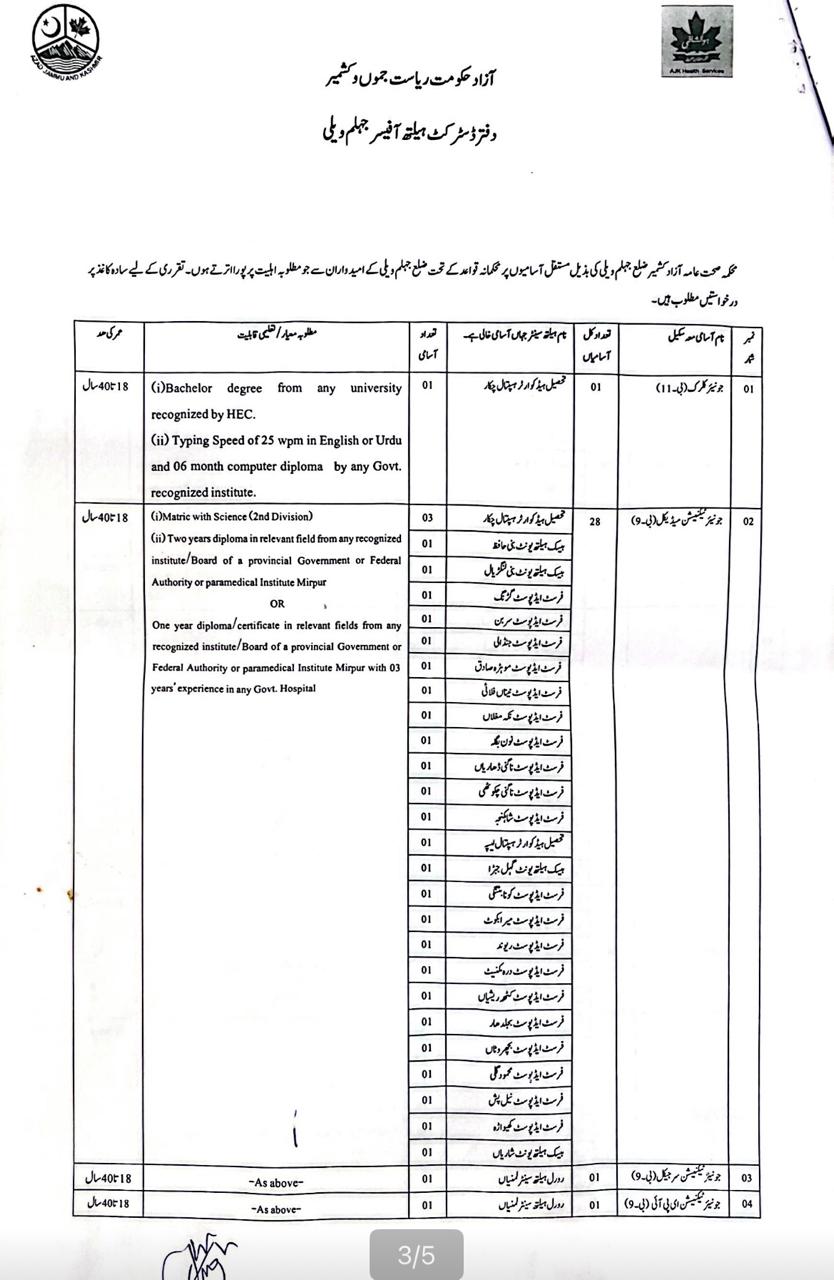 AZAD JAMMU AND KASHMIR
AJK Health Services
آزاد حکومت ریاست جموں و کشمیر
دفتر ڈسٹرکٹ ہیلتھ آفیسر جہلم ویلی
محکمہ صحت عامہ آزاد کشمیر ضلع جہلم ویلی کی بذیل مستقل آسامیوں پر محکمانہ قواعد کے تحت ضلع جہلم ویلی کے امیدواران سے جو مطلوبہ اہلیت پر پورا اترتے ہوں۔ تقرری کے لیے سادہ کاغذ پر
درخواستیں مطلوب ہیں۔
نمبر شمار نام آسامی معہ سکیل تعداد کل آسامیاں نام ہیلتھ سینٹر جہاں آسامی خالی ہے۔ تعداد آسامی مطلوبہ معیار/تعلیمی قابلیت عمر کی حد
01 جونیئر کلرک (بی۔11) 01 تحصیل ہیڈ کوارٹر ہسپتال چکار 01 18 تا 40 سال
(i)Bachelor degree from any university
recognized by HEC.
(ii) Typing Speed of 25 wpm in English or Urdu
and 06 month computer diploma by any Govt.
recognized institute.
02 جونیئر ٹیکنیشن میڈیکل (بی۔9) 28 18 تا 40 سال
(i)Matric with Science (2nd Division)
(ii) Two years diploma in relevant field from any recognized
institute/Board of a provincial Government or Federal
Authority or paramedical Institute Mirpur
OR
One year diploma/certificate in relevant fields from any
recognized institute/Board of a provincial Government or
Federal Authority or paramedical Institute Mirpur with 03
years' experience in any Govt. Hospital
تحصیل ہیڈ کوارٹر ہسپتال چکار 03
بیسک ہیلتھ یونٹ بنی حافظ 01
بیسک ہیلتھ یونٹ بنی لنگڑیال 01
فرسٹ ایڈ پوسٹ گڑتنگ 01
فرسٹ ایڈ پوسٹ سربن 01
فرسٹ ایڈ پوسٹ جنڈالی 01
فرسٹ ایڈ پوسٹ موہڑہ صادق 01
فرسٹ ایڈ پوسٹ 01
فرسٹ ایڈ پوسٹ تکہ مغلاں 01
فرسٹ ایڈ پوسٹ نون بگلہ 01
فرسٹ ایڈ پوسٹ ناگنی ڈھاریاں 01
فرسٹ ایڈ پوسٹ ناگنی چکوٹھی 01
فرسٹ ایڈ پوسٹ 01
تحصیل ہیڈ کوارٹر ہسپتال لیپہ 01
بیسک ہیلتھ یونٹ گہل جبڑا 01
فرسٹ ایڈ پوسٹ 01
فرسٹ ایڈ پوسٹ میرا بکوٹ 01
فرسٹ ایڈ پوسٹ ریوند 01
فرسٹ ایڈ پوسٹ 01
فرسٹ ایڈ پوسٹ کٹھہ ریشیاں 01
فرسٹ ایڈ پوسٹ بجلدھار 01
فرسٹ ایڈ پوسٹ 01
فرسٹ ایڈ پوسٹ محمود گلی 01
فرسٹ ایڈ پوسٹ نیل پش 01
فرسٹ ایڈ پوسٹ کھیواڑہ 01
بیسک ہیلتھ یونٹ شاریاں 01
03 جونیئر ٹیکنیشن سرجیکل (بی۔9) 01 رورل ہیلتھ سینٹر لمنیاں 01 -As above- 18 تا 40 سال
04 جونیئر ٹیکنیشن ای پی آئی (بی۔9) 01 رورل ہیلتھ سینٹر لمنیاں 01 -As above- 18 تا 40 سال
3/5